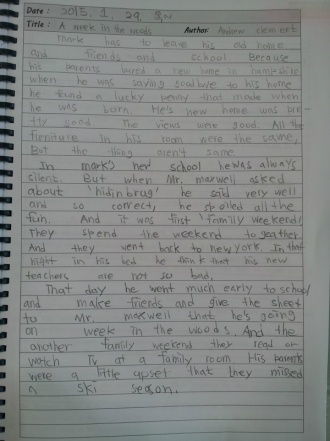 Date : 2015. 1. 29.
Title : A week in the woods Author Andrew clement
Mark has to leave his old home
and friends and school Because
his parents bured a new home in
when he was saying goodbye to his home
he found a lucky penny that made when
he was born. He's new home was pre-
tty good The views were good. All the
fierniture In his room were the same,
But the thing aren't same
In mark's her school he was always
silent. But when Mr. maxwell asked
about 'hidinbrug' he said very well
and so correct, he spoiled all the
fun. And it was first family weekend!
They spend the weekend to geather.
And they went back to newyork. In that
night in his bed he think that his new
teachers are not so bad.
That day he went much early to school
and make friends and give the sheet
to Mr. maxwell that he's going
on week in the woods. And the
another family weekend they read or
watch Tv at a family room His parents
were a little upset that they missed
a ski season.